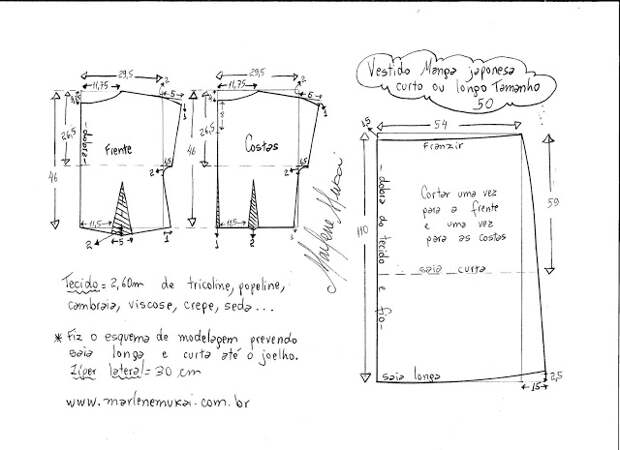 29,5
2
29,5
2
11,75
5
11,75
6
26,5
46
- dobra -
Frente
2
1,5
1
11,5
2
5
1
26,5
46
Costas
2
1,5
1
11,5
2
Marlene Mukai
Vestido Manga japonesa
curto ou longo Tamanho
50
1,5
54
Franzir
110
59
- dobra do tecido e fio -
Cortar uma vez
para a frente
e uma vez
para as costas
saia curta
saia longa
15
2,5
Tecido = 2,60m de tricoline, popeline,
cambraia, viscose, crepe, seda...
* Fiz o esquema de modelagem prevendo
saia longa e curta até o joelho.
Zíper lateral = 30 cm
www.marlenemukai.com.br